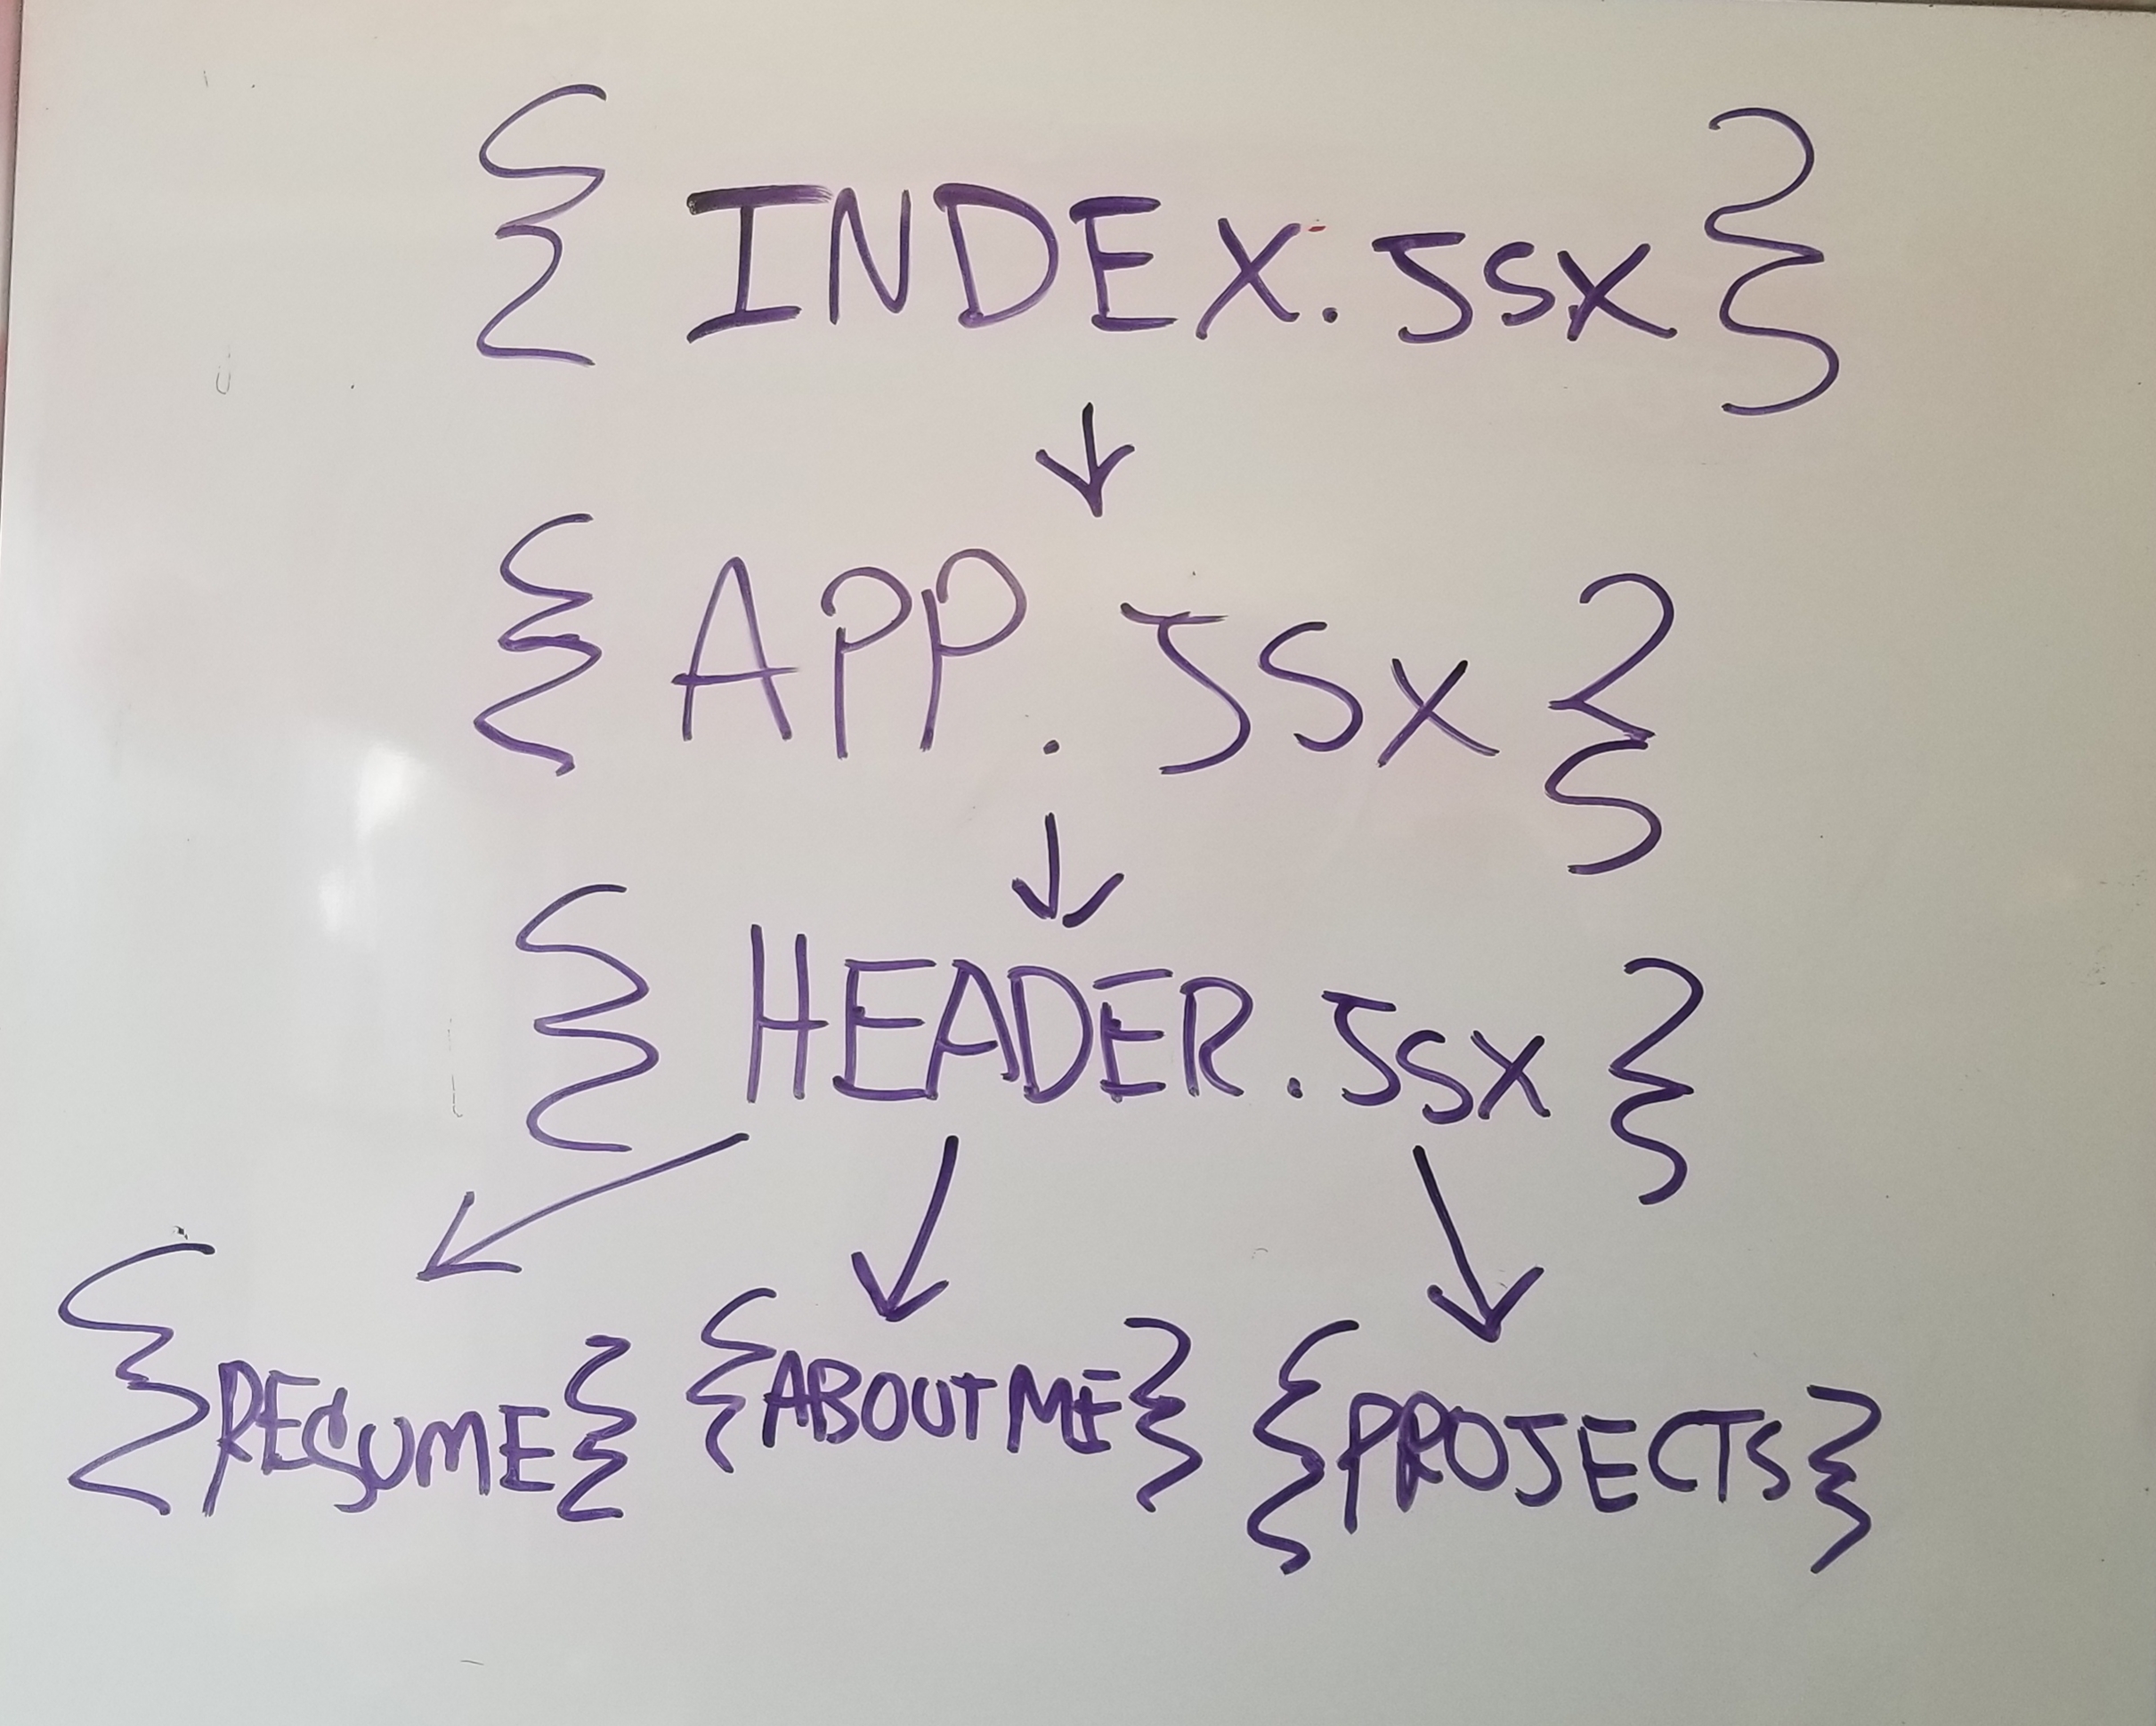 { INDEX.JSX }
{ APP.JSX }
{ HEADER.JSX }
{RESUME{ {ABOUT ME} {PROJECTS}